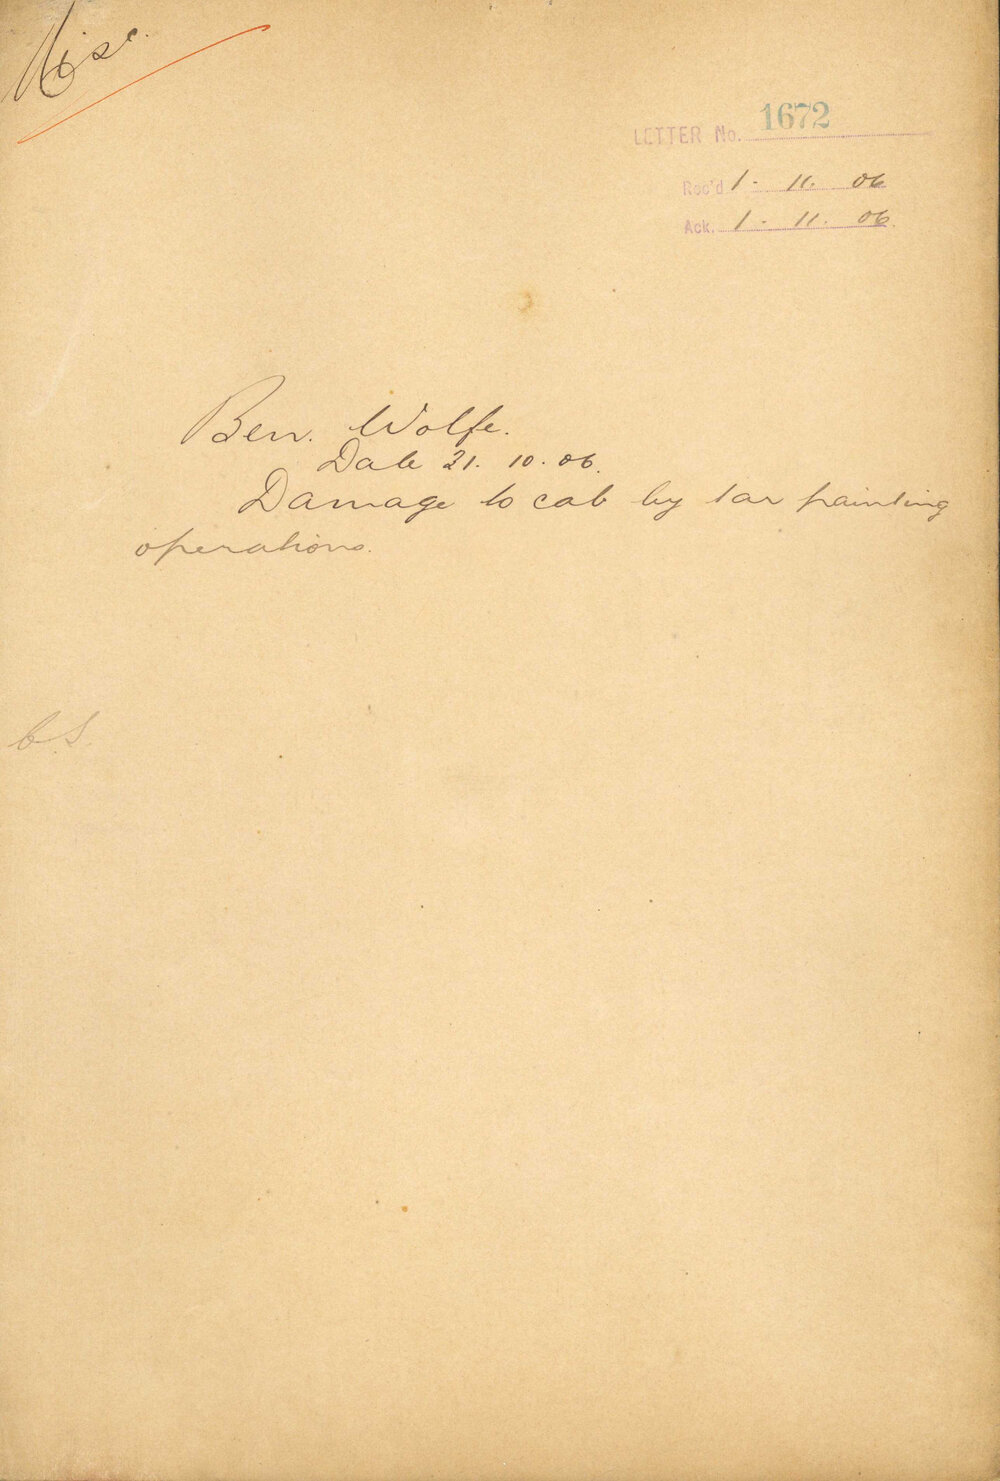 Misc.
LETTER No. 1672
Rec'd 1. 11. 06
Ack. 1. 11. 06.
Ben. Wolfe.
Date 31. 10. 06.
Damage to cab by tar painting
operations.
C.S.